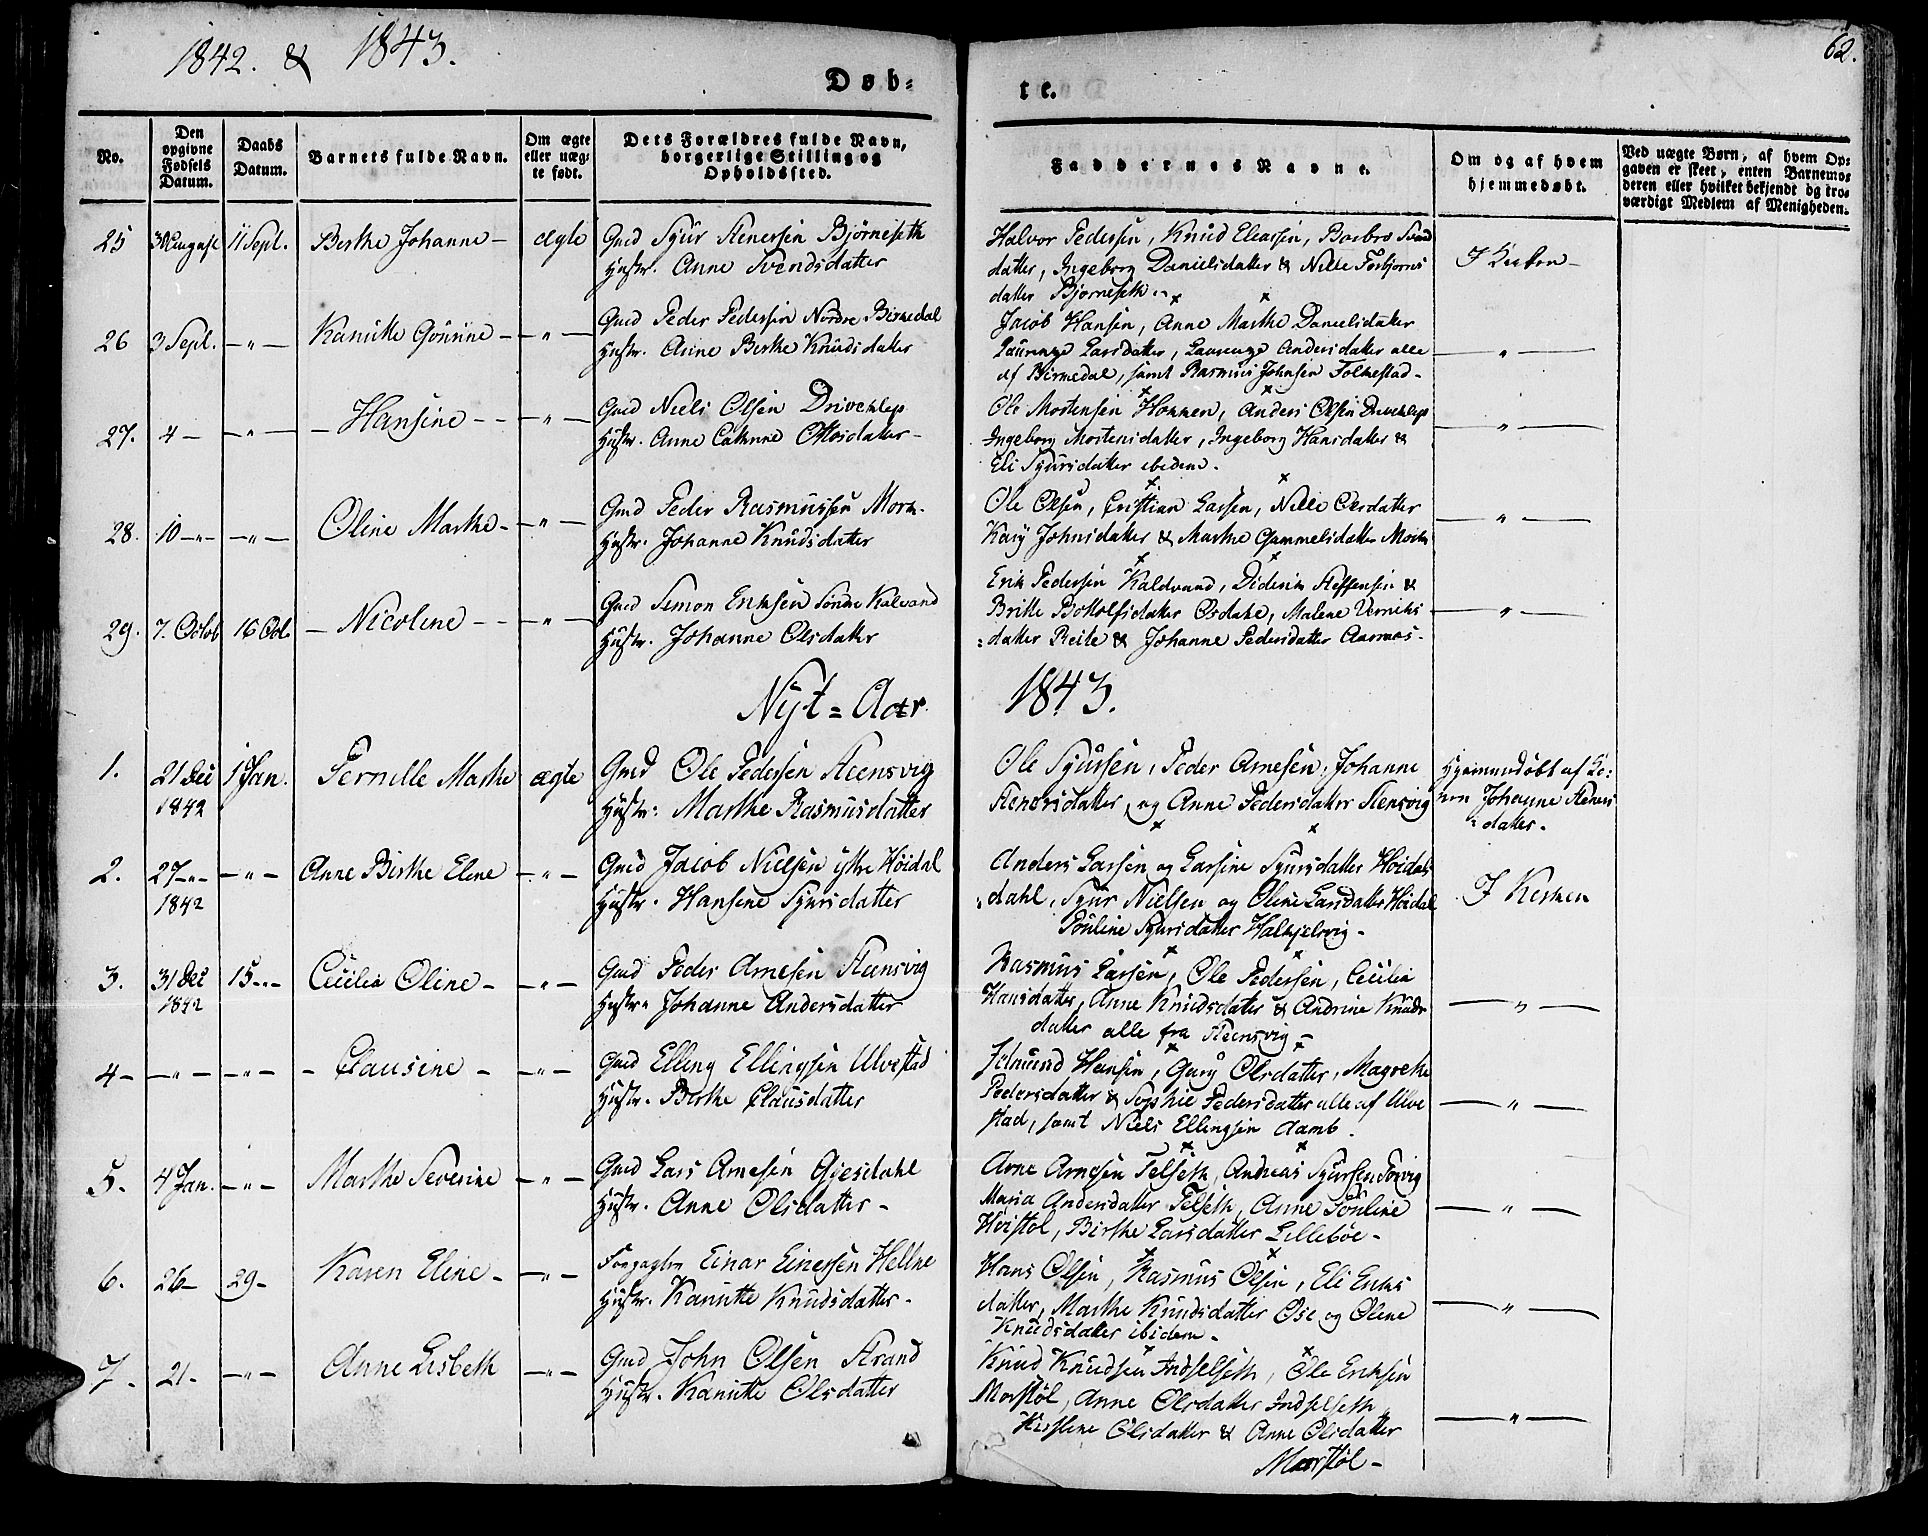 1842. & 1843.
62.
Døb=
te.
No.
Den opgivne Fødsels Datum.
Daabs Datum.
Barnets fulde Navn.
Om ægte eller uæg= te født.
Dets Forældres fulde Navn, borgerlige Stilling og Opholdsted.
Faddernes Navne.
Om og af hvem hjemmedøbt.
Ved uægte Børn, af hvem Op= gaven er skeet, enten Barnemo= deren eller hvilket bekjendt og tro= værdigt Medlem af Menigheden.
25 30 August 11 Sept. Berthe Johanne - ægte Gmd Sjur Stenersen Bjørneseth
Hustr. Anne Svendsdatter
Halvor Pedersen, Knud Eleassen, Barbro Svend
datter, Ingeborg Danielsdatter & Nille Torbjørns
datter Bjørneseth
I Kirken -
26 3 Sept. - " - Kanutte Gurine - - " - Gmd Peder Pedersen Nordre Birkedal
Hustr. Anne Berthe Knudsdatter
Jacob Hansen, Anne Marthe Danielsdatter
Laurenze Larsdatter, Laurenze Andersdatter alle
af Birkedal, samt Rasmus Johnsen Folkestad -
- " -
27. 4 - - " - - Hansine - - - " - Gmd Niels Olsen Driveklep
Hustr. Anne Cathrine Ottosdatter -
Ole Mortensen Hovden, Anders Olsen Driveklep
Ingeborg Mortensdatter, Ingeborg Hansdatter &
Eli Sjursdatter ibidem.
- " -
28. 10 - " - - " - Oline Marthe - - " - Gmd Peder Rasmussen Mork
Hustr. Johanne Knudsdatter
Ole Olsen, Cristian Larsen, Nille Olsdatter
Kary Johnsdatter & Marthe Gammelsdatter Mork
- " -
29. 7. Octob 16 Oct. - Nicoline - - - " - Gmd Simon Eriksen Kalvand
Hustr. Johanne Olsdatter
Erik Pedersen Kaldvand, Diderik Steffensen &
Britte Bottolfsdatter Osdahl, Malene Verniks
datter Reite & Johanne Pedersdatter Aarnes -
- " -
Nyt = Aar
1843.
1. 21 Dec 1842 1 Jan. Pernille Marthe ægte Gmd Ole Pedersen Steensvig
Hustr: Marthe Rasmusdatter
Ole Sjursen, Peder Arnesen, Johanne
Stenersdatter, og Anne Pedersdatter Stensvig
Hjemmedøbt af Ko=
nen Johanne Steners
=datter.
2. 27 - " - 1842 - " - Anne Birthe Eline - " - Gmd Jacob Nielsen ytre Høidal
Hustr. Hansine Sjursdatter
Anders Larsen og Larsine Sjursdatter Høidals
dahl, Sjur Nielsen og Oline Larsdatter Høidal
Pouline Sjursdatter Halkjelsvig -
I Kirken
3. 31 Dec 1842 15 - " - Cecilia Oline - - " - Gmd Peder Arnesen Steensvig
Hustr. Johanne Andersdatter
Rasmus Larsen, Ole Pedersen, Cecilia
Hansdatter, Anne Knudsdatter & Andrine Knuds
datter alle fra Steensvig -
- " -
4 - - " - - " - - Clausine - - " - Gmd Elling Ellingsen Ulvestad
Hustr. Berthe Clausdatter
Hansen, Gury Olsdatter, Magrethe
Pedersdatter & Sophie Pedersdatter alle af Ulve
stad, samt Niels Ellingsen damb.
- " -
5. 4 Jan. - " - Marthe Severine - " - Gmd Lars Arnesen Gjesdahl
Hustr. Anne Olsdatter -
Arne Arnesen Felseth, Andreas Sjursen
Maria Andersdatter Felseth, Anne Pouline
Høistøl, Birthe Larsdatter Lillebøe -
- " -
6. 26 - 29 - Karen Eline - - " - Einar Einersen Hellne
Hustr. Kanutte Knudsdatter -
Hans Olsen, Rasmus Olsen, Eli Eriks
datter, Marthe Knudsdatter Ose og Oline
Knudsdatter ibidem -
- " -
7. 21 - - " - Anne Lisbeth - " - Gmd John Olsen Strand
Hustr. Kanutte Olsdatter
Knud Knudsen Indselseth, Ole Eriksen
Morstøl, Anne Olsdatter Indselseth
Olsdatter & Anne Olsdatter
Morstøl -
- " -